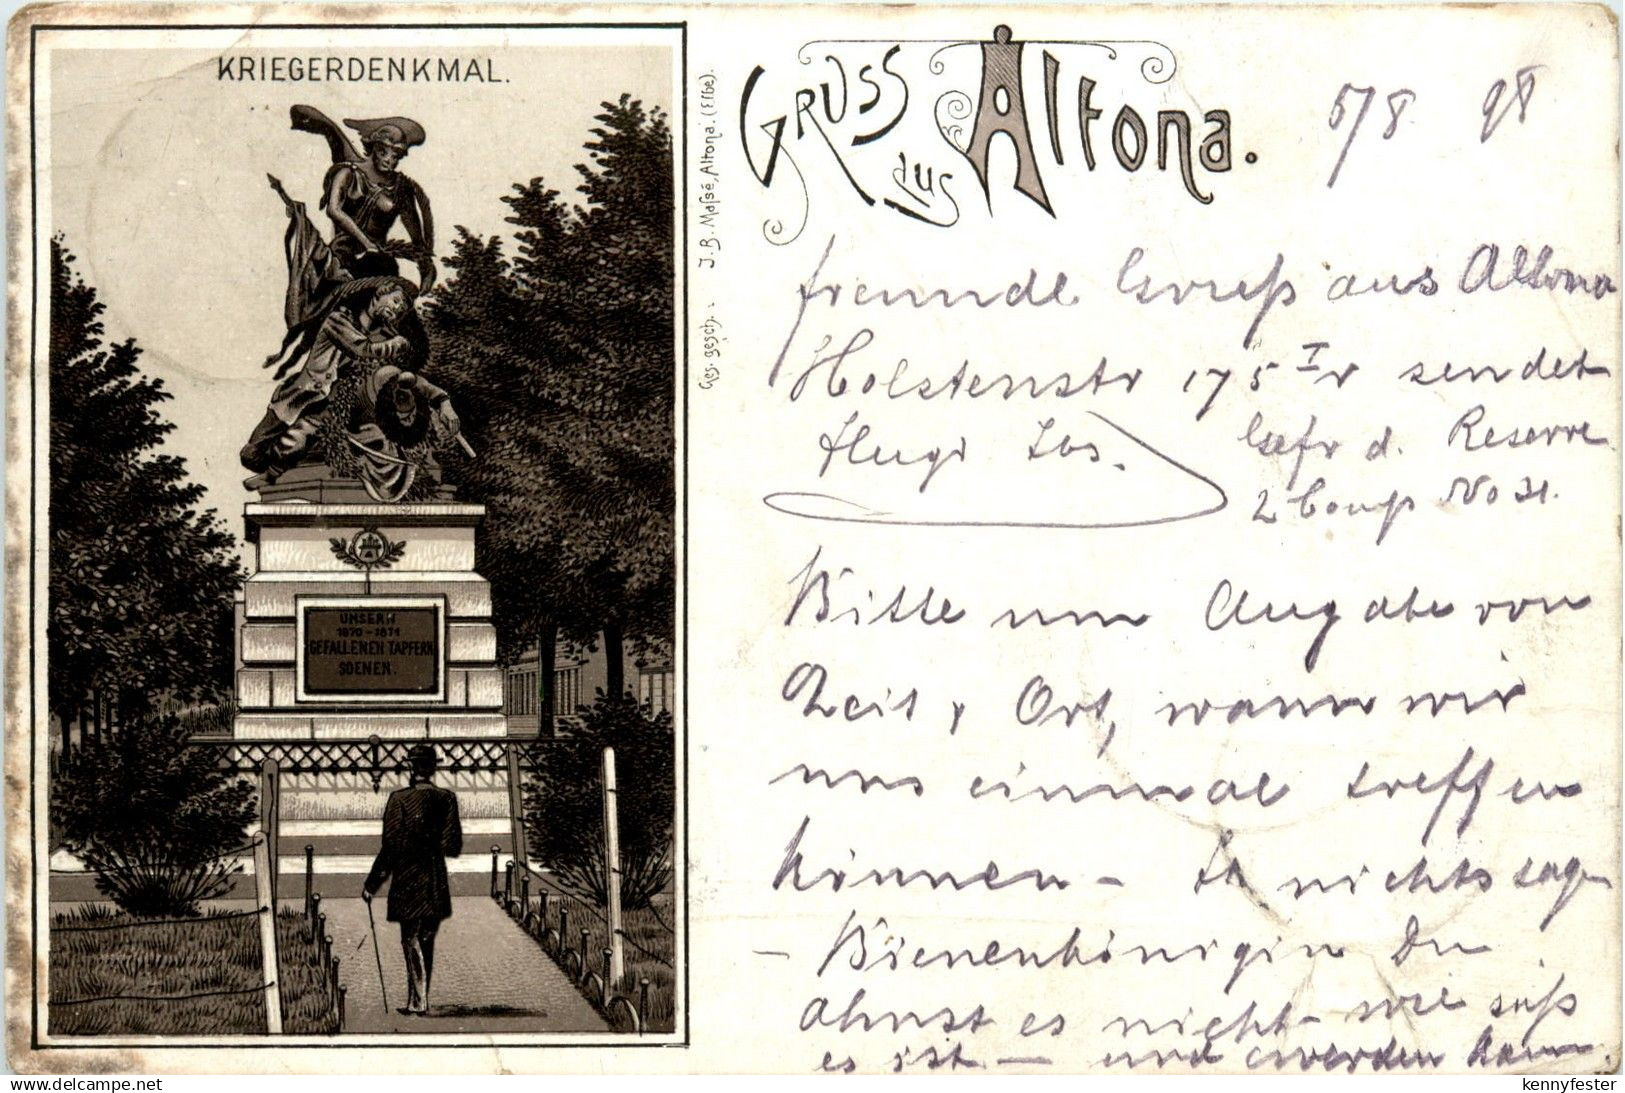 KRIEGERDENKMAL.
UNSERN
1870-1871
GEFALLENEN TAPFERN
SOENEN.
Ges. gesch. J. B. Massé, Altona. (Erbe).
GRUSS
aus Altona.
5/8 98
freundl Gruß aus Altona
Holstenstr 175 I r sendet
Hugo
Gefr d. Reserve
2 Comp No 31.
Bitte um Angabe von
Zeit & Ort, wann wir
uns einmal treffen
können - nichts sagen
- Bienenkönigin Du
ahnst es nicht - wie süß
es ist - und werden kann.
www.delcampe.net
kennyfester